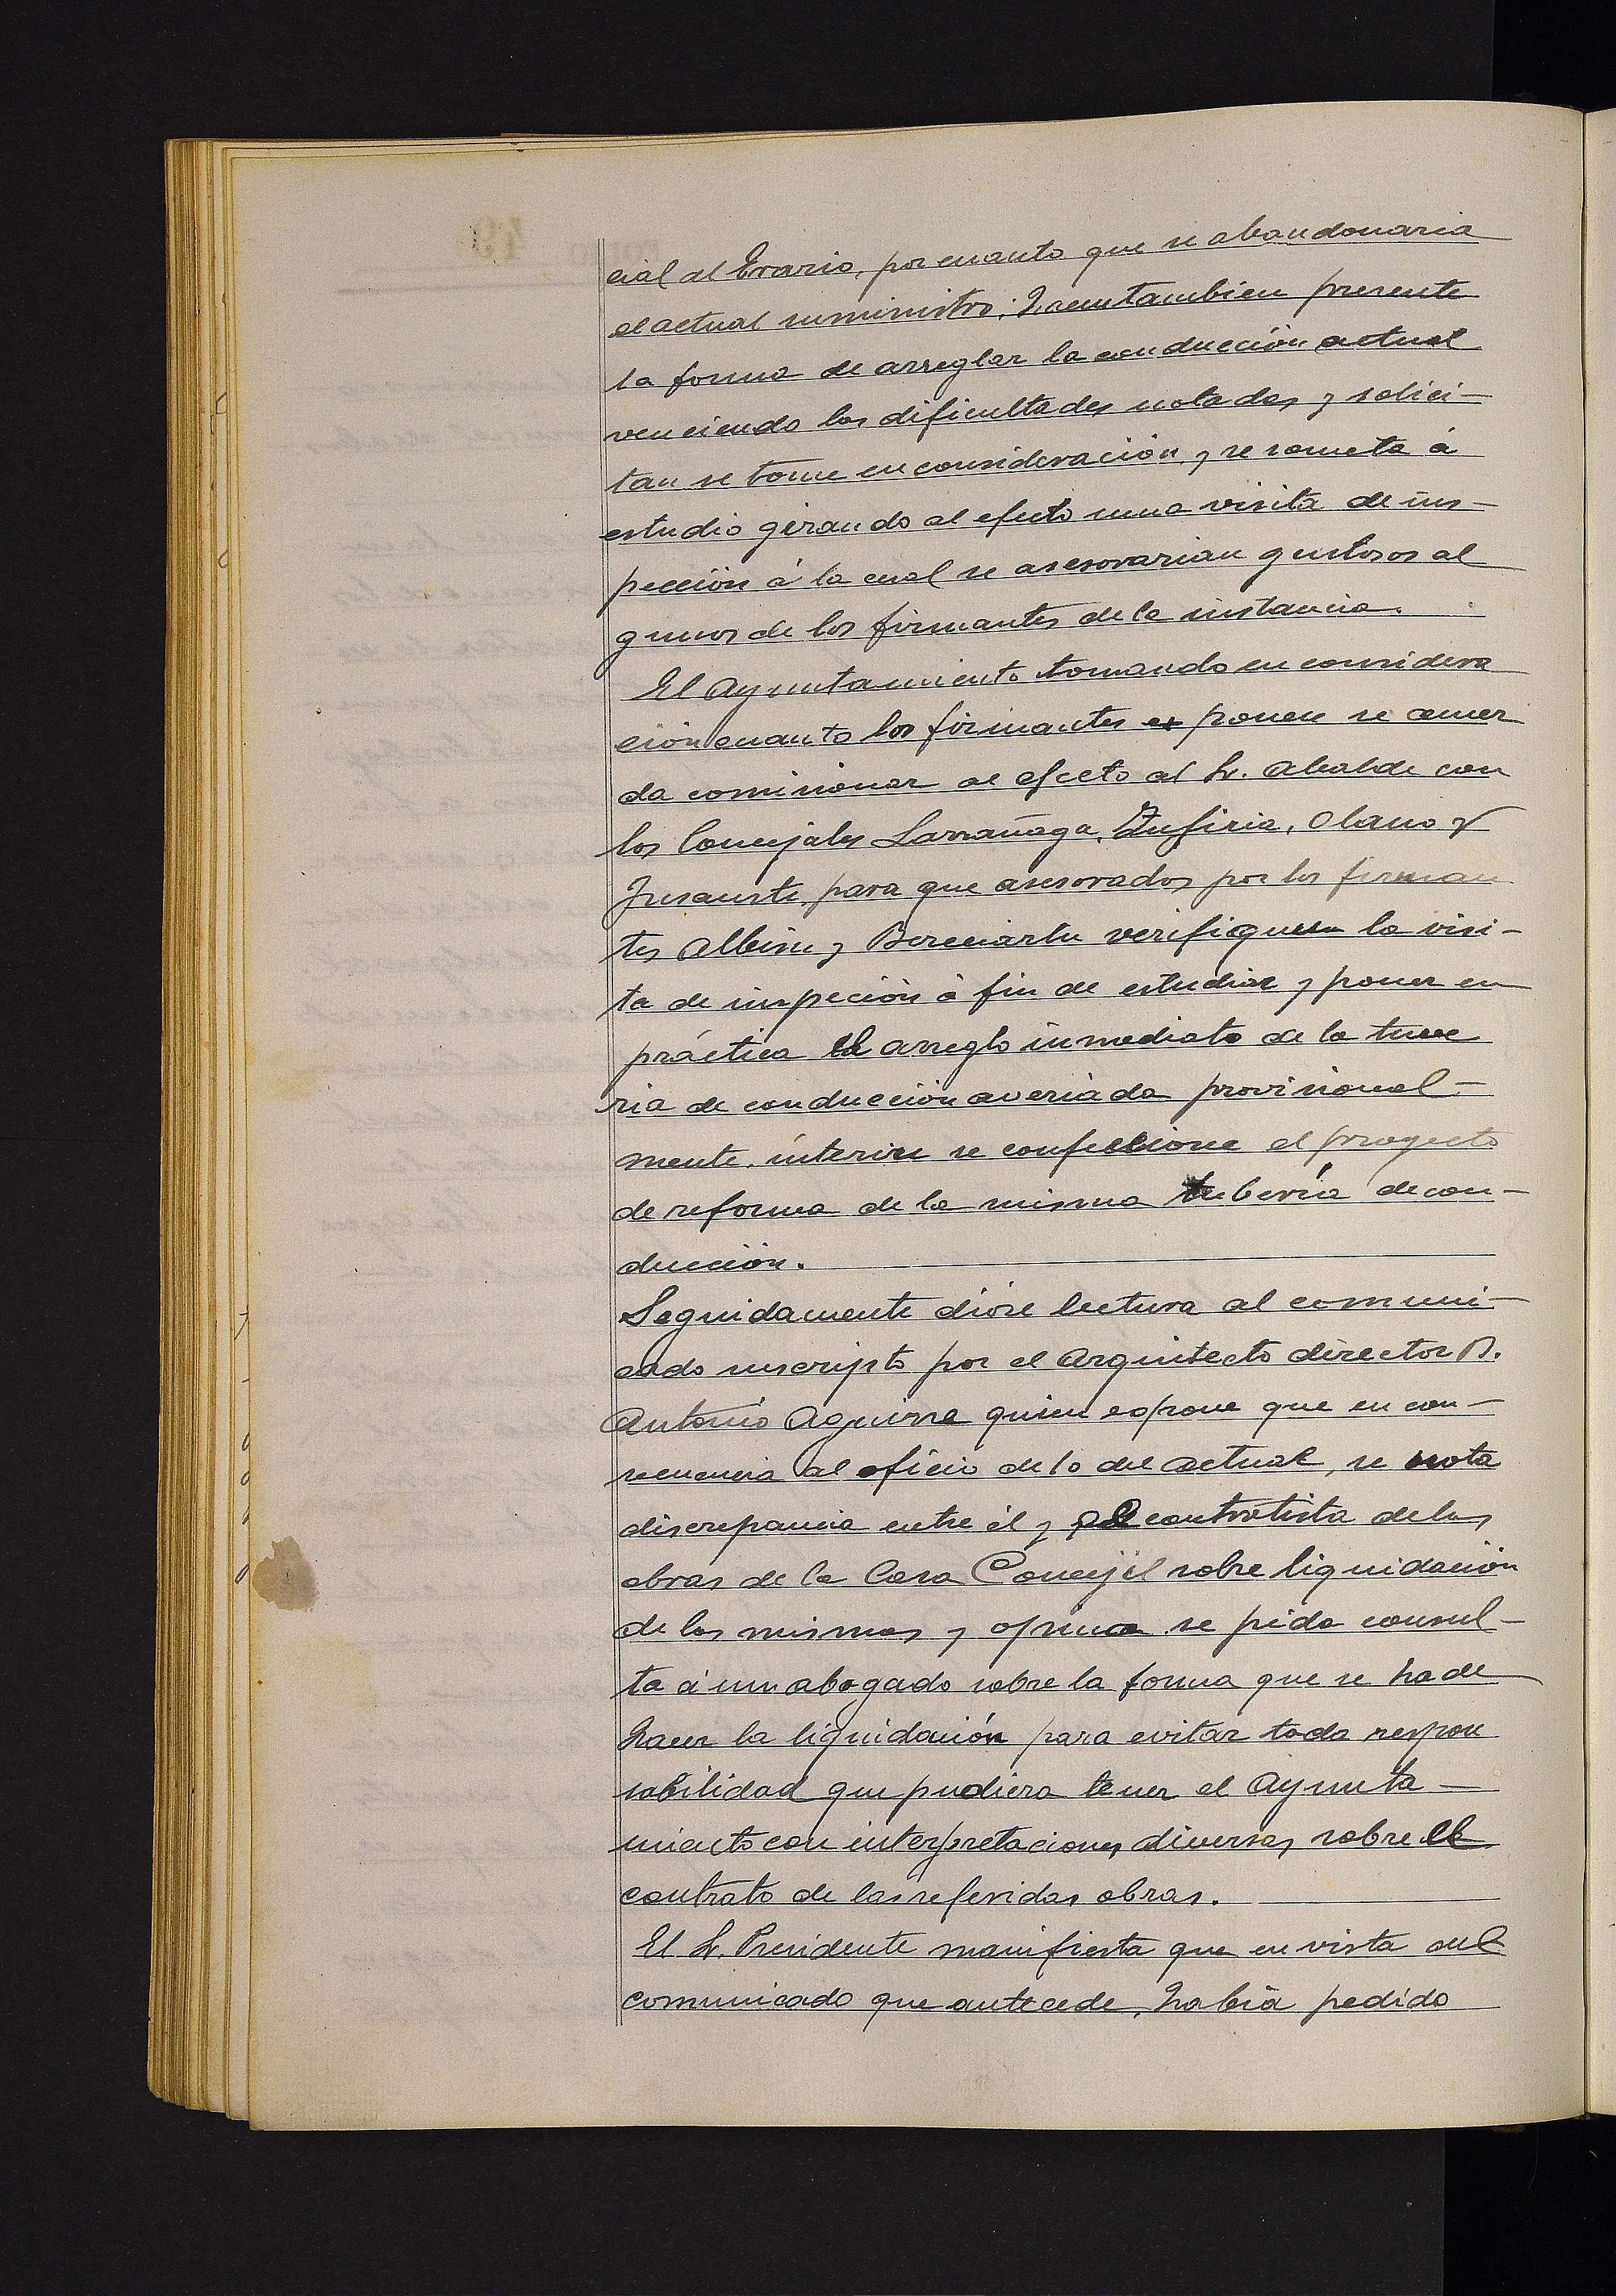 cial al Erario, por cuanto que se abandonaria
el actual suministro; Hacen tambien presente
la forma de arreglar la conducción actual
venciendo las dificultades notadas y solici-
tan se tome en consideración, y se someta á
estudio girando al efecto una visita de ins-
pección á la cual se asesorarian gustosos al
gunos de los firmantes de la instancia.
El Ayuntamiento tomando en considera
ción cuanto los firmantes exponen se acuer
da comisionar al efecto al Sr. Alcalde con
los Concejales Larrañaga, Zufiria, Olano y
Jusauste, para que asesorados por los firman
tes Albisu y Bereciartu verifiquen la visi-
ta de inspeción á fin de estudiar y poner en
práctica el arreglo inmediato de la tuve
ria de conducción averiada provisional-
mente, interin se confeccione el proyecto
de reforma de la misma tubería de con-
ducción.
Seguidamente dióse lectura al comuni-
cado suscripto por el Arquitecto director D.
Antonio Aguirre quien expone que en con-
secuencia al oficio de 10 del actual, se nota
discrepancia entre él y el contratista de las
obras de la Casa Concejil sobre liquidación
de las mismas y opina se pida consul-
ta á un abogado sobre la forma que se ha de
hacer la liquidación para evitar toda respon
sabilidad que pudiera tener el Ayunta-
miento con interpretaciones diversas sobre el
contrato de las referidas obras.
El Sr. Presidente manifiesta que en vista del
comunicado que antecede, habia pedido